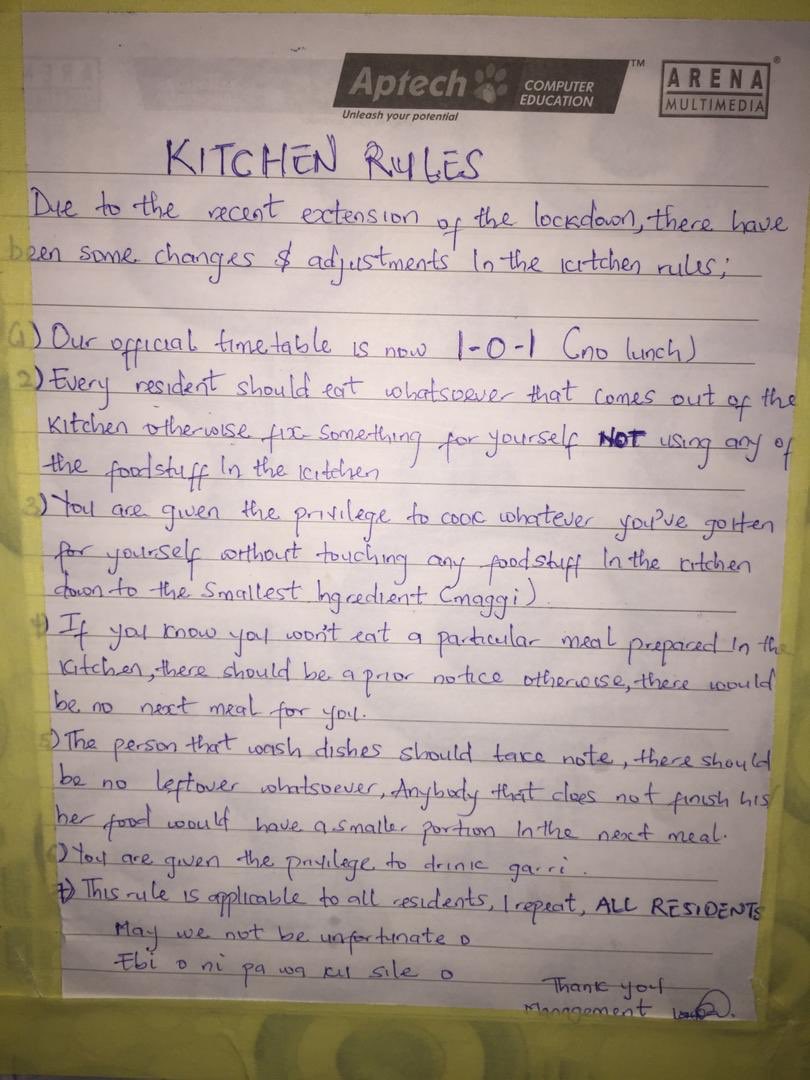 Aptech COMPUTER EDUCATION ™
Unleash your potential
ARENA MULTIMEDIA ®
KITCHEN RULES
Due to the recent extension of the lockdown, there have
been some changes & adjustments In the kitchen rules;
1) Our official timetable is now 1-0-1 (no lunch)
2) Every resident should eat whatsoever that comes out of the
kitchen otherwise fix something for yourself NOT using any of
the foodstuff In the kitchen
3) You are given the privilege to cook whatever you've gotten
for yourself without touching any foodstuff In the kitchen
down to the smallest Ingredient (maggi).
4) If you know you won't eat a particular meal prepared In the
kitchen, there should be a prior notice otherwise, there would
be no next meal for you.
5) The person that wash dishes should take note, there should
be no leftover whatsoever, Anybody that does not finish his/
her food would have a smaller portion In the next meal.
6) You are given the privilege to drink garri.
7) This rule is applicable to all residents, I repeat, ALL RESIDENTS
May we not be unfortunate o
Ebi o ni pa wa ku sile o
Thank you
Management